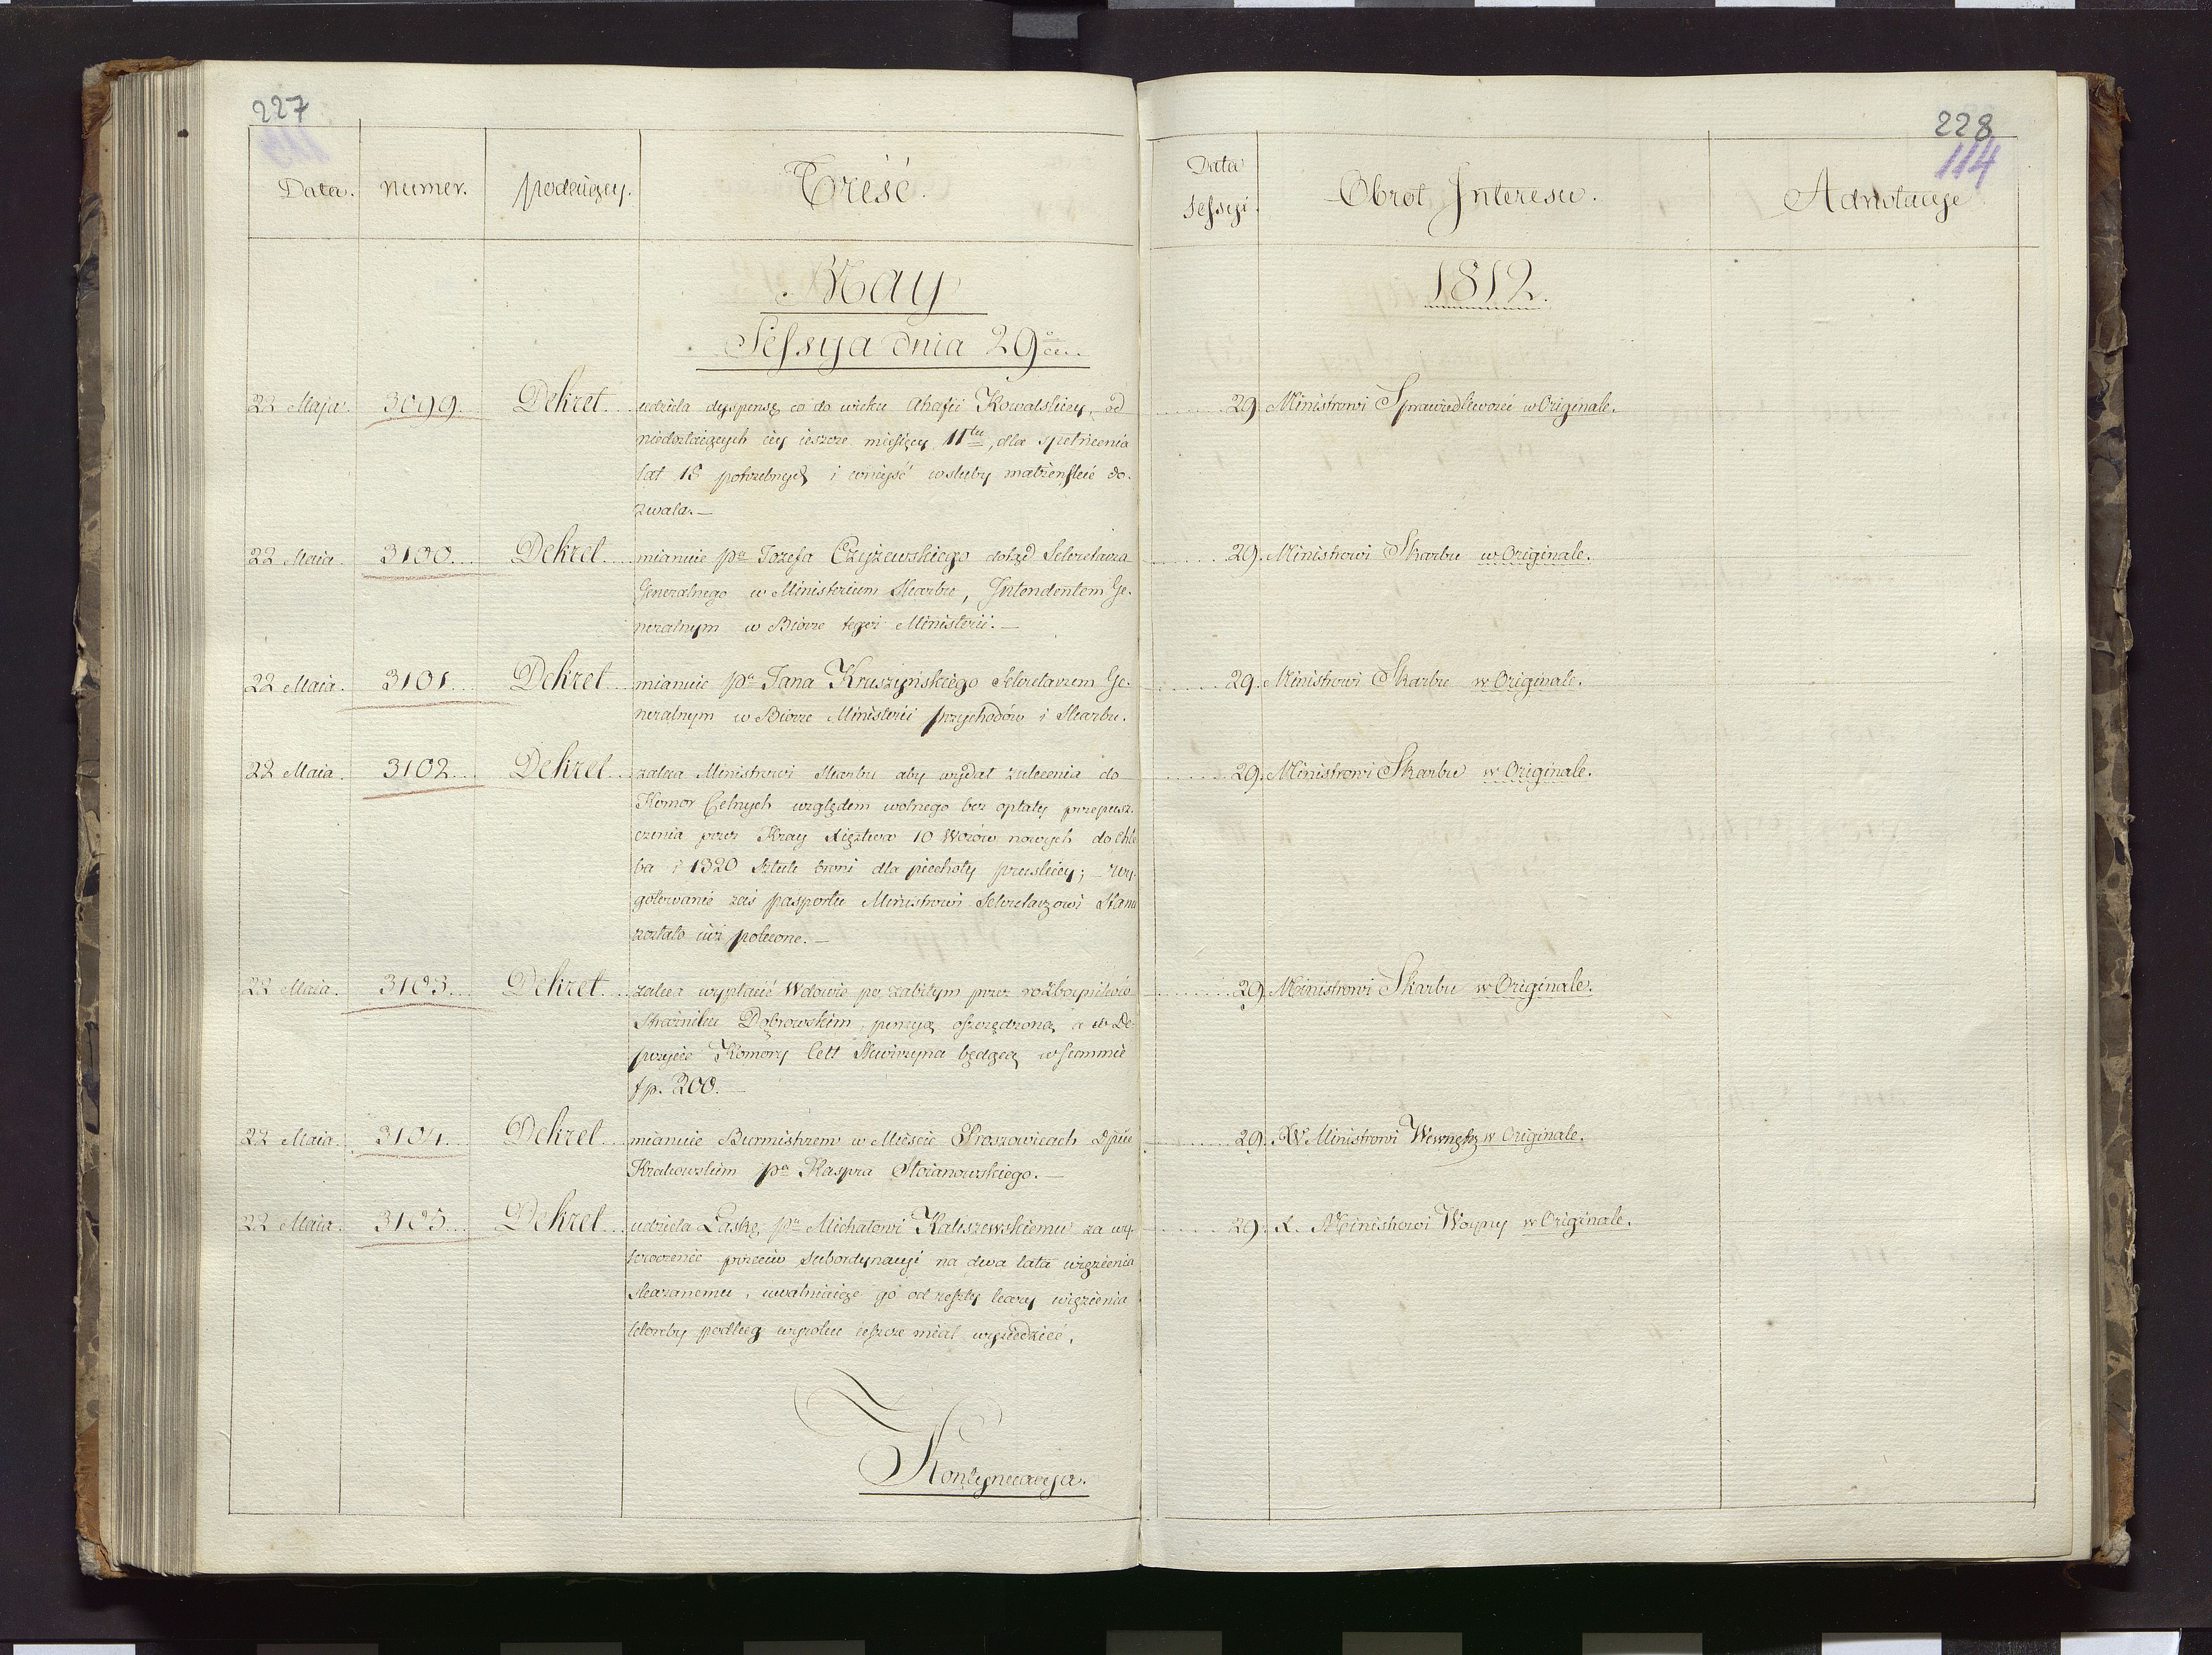 227
Data. numer. podaiący. Treść.
May
Sessya dnia 29
22 Maja. 3099. Dekret udziela dyspensę co do wieku Kowalskiey, od
niedostaiących iey ieszcze miesięcy 11tu, dla spełnienia
lat 18 potrzebnych i wniyść w sluby małżeńskie do-
zwala.—
22 Maia. 3100. Dekret mianuie Pa Jozefa Czyżewskiego dotąd Sekretarza
Generalnego w Ministerium Skarbu, Intendentem Ge-
neralnym w Biorze tegoż Ministerii.—
22 Maia. 3101 Dekret mianuie Pa Jana Kruszyńskiego Sekretarzem Ge-
neralnym w Biorze Ministerii przychodów i Skarbu.
22 Maia. 3102 Dekret zaleca Ministrowi Skarbu aby wydał zalecenia do
Komor Celnych względem wolnego bez opłaty przepusz-
czenia przez Kray Xięztwa 10 Wozów nowych do Chle
ba i 1320 Sztuk broni dla piechoty pruskiey; — wy-
gotowanie zaś pasportu Ministrowi Sekretarzowi Stanu
zostało iuż polecone.—
22 Maia. 3103. Dekret zaleca wypłacić Wdowie po zabitym przez rozboyników
Strażniku Dąbrowskim, pensyą oszczędzoną a w De-
pozycie Komory Cell będącą w summie
fp. 200.—
22 Maia. 3104. Dekret mianuie Burmistrzem w Mieście Proszowicach Dpcie
Krakowskim Pa Kaspra Stoianowskiego.—
22 Maia. 3105. Dekret udziela Łaskę Pu Michałowi Kaliszewskiemu za wy-
kroczenie przeciw subordynacyi na dwa lata więzienia
skazanemu, uwalniaiąc go od reszty kary więzienia
ktorąby podług wyroku ieszcze miał wysiedzieć.
Kontynuacya.
228
114
Data
Sessyi. Obrot Interesu. Adnotacye
1812.
29. Ministrowi Sprawiedliwości w Originale.
29. Ministrowi Skarbu w Originale.
29. Ministrowi Skarbu w Originale.
29. Ministrowi Skarbu w Originale.
29. Ministrowi Skarbu w Originale.
29. Ministrowi Wewnętrz w Originale.
29. Ministrowi Woyny w Originale.